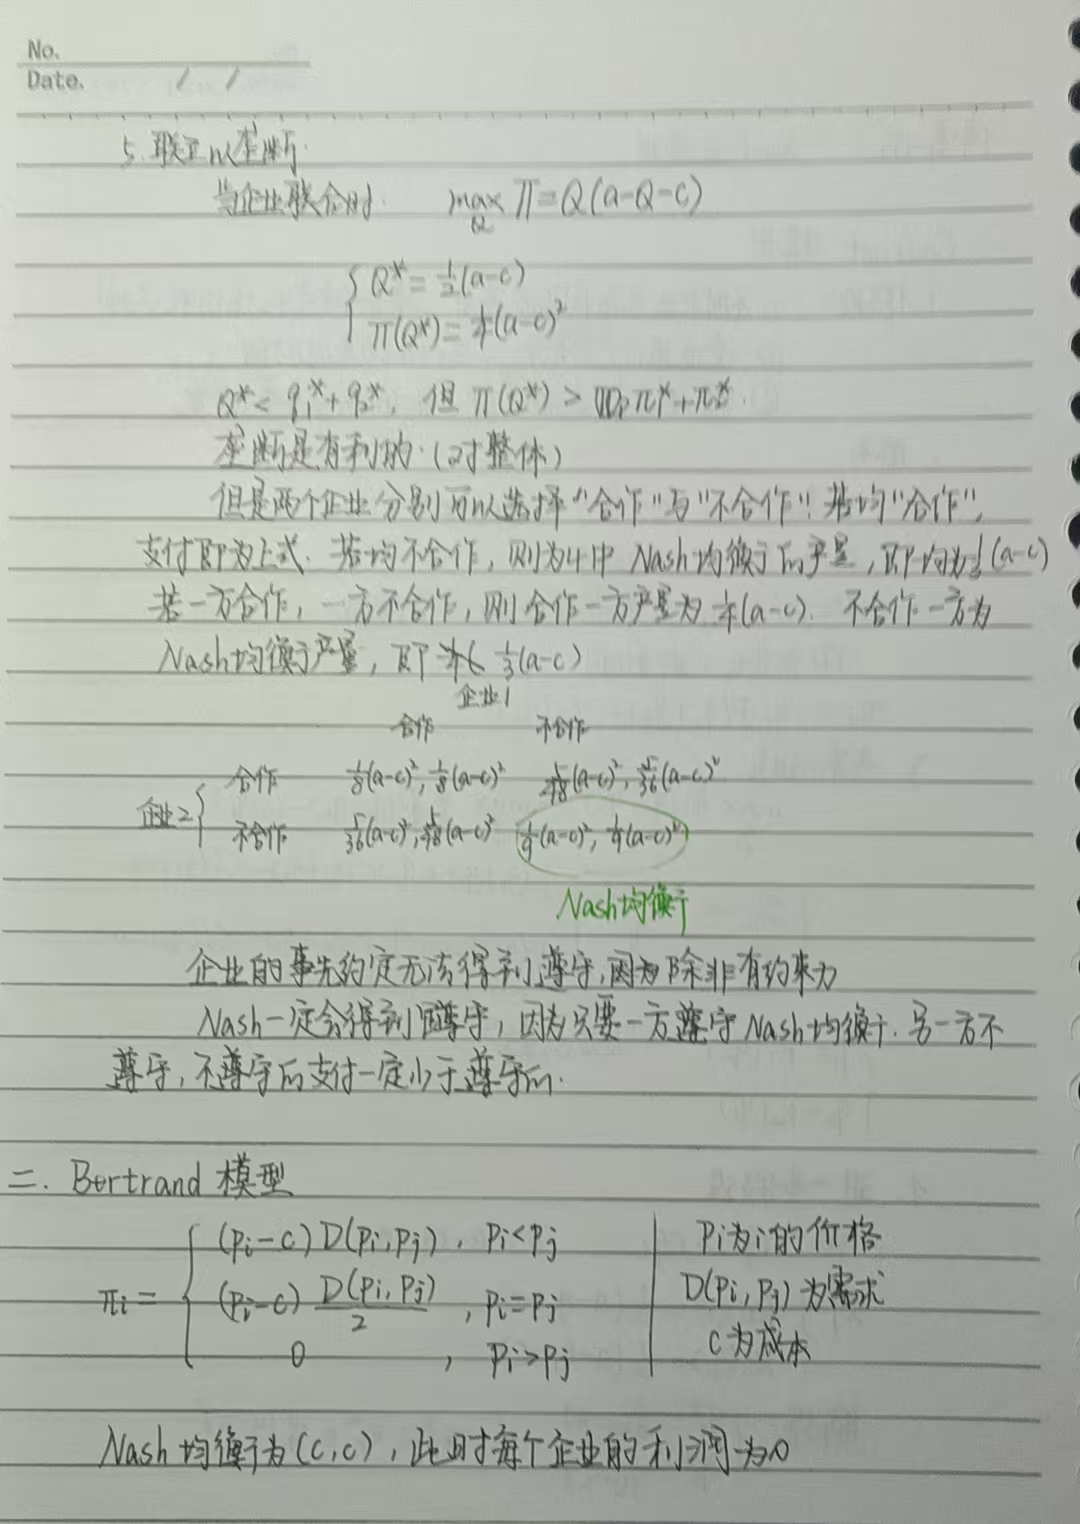 No.
Date. / /
5. 联立以垄断.
当企业联合时. max Π=Q(a-Q-c)
Q
Q*=½(a-c)
π(Q*)=¼(a-c)²
Q*<q₁*+q₂*, 但 π(Q*)> π₁*+π₂*.
垄断是有利的.(对整体)
但是两个企业分别可以选择“合作”与“不合作”! 若均“合作”,
支付即为上式. 若均不合作, 则为4中 Nash均衡的产量, 即均为⅓(a-c)
若一方合作, 一方不合作, 则合作一方产量为¼(a-c). 不合作一方为
Nash均衡产量, 即 ⅓(a-c)
企业1
合作 不合作
合作 ⅛(a-c)², ⅛(a-c)² 5/48(a-c)², 5/36(a-c)²
企业2
不合作 5/36(a-c)², 5/48(a-c)² 1/9(a-c)², 1/9(a-c)²
Nash均衡
企业的事先约定无法得到遵守,因为除非有约束力
Nash一定会得到遵守, 因为只要一方遵守Nash均衡. 另一方不
遵守, 不遵守的支付一定少于遵守的.
二. Bertrand 模型
(pi-c) D(pi,pj), pi<pj Pi为i的价格
πi= (pi-c) D(pi,pj)/2, pi=pj D(Pi,Pj)为需求
0, pi>pj c为成本
Nash 均衡为(c,c), 此时每个企业的利润为0